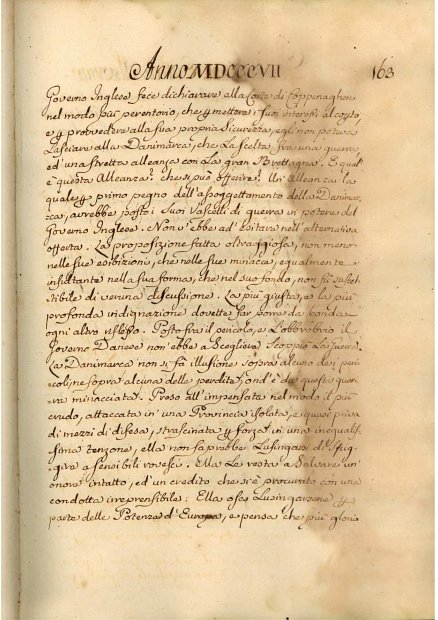 Anno MDCCCVII 163
Governo Inglese fece dichiarare alla Corte di Coppenaghen
nel modo più perentorio, che p mettere i suoi interessi al coperto,
e p provvedere alla sua propria Sicurezza, egli non poteva
lasciare alla Danimarca, che la scelta fra una guerra
ed una stretta alleanza con la gran Brettagna. E qual
è questa Alleanza? che si può offerire! Un'Alleanza la
quale p primo pegno dell'assoggettamento della Danimar-
ca, avrebbe posto i suoi Vascelli di guerra in potere del
Governo Inglese. Non v'ebbe ad esitare nell'alternativa
offerta. La proposizione fatta oltraggiosa, non meno
nelle sue esibizioni, che nelle sue minacce, egualmente
insultante nella sua forma, che nel suo fondo, non fù suscet-
tibile di veruna discussione. La più giusta, e la più
profonda indignazione dovette far porre da banda
ogni altro riflesso. Posto fra il pericolo, e l'obbrobrio il
Governo Danese non ebbe a Scegliere. Scoppiò la guerra.
La Danimarca non si fà illusione sopra alcuno dei peri-
coli, ne sopra alcuna delle perdite, ond'è da questa guer-
ra minacciata. Presa all'impensata nel modo il più
crudo, attaccata in una Provincia isolata, e quasi priva
di mezzi di difesa, strascinata p forza in una inegualis-
sima tenzone, ella non saprebbe Lusingarsi di sfug-
gire a sensibili rovesci. Ella Le resta a Salvare un'
onore intatto, ed un credito che si è procurato con una
condotta irreprensibile: Ella osa Lusingarsene p
parte delle Potenze d'Europa, e pensa che più glorio